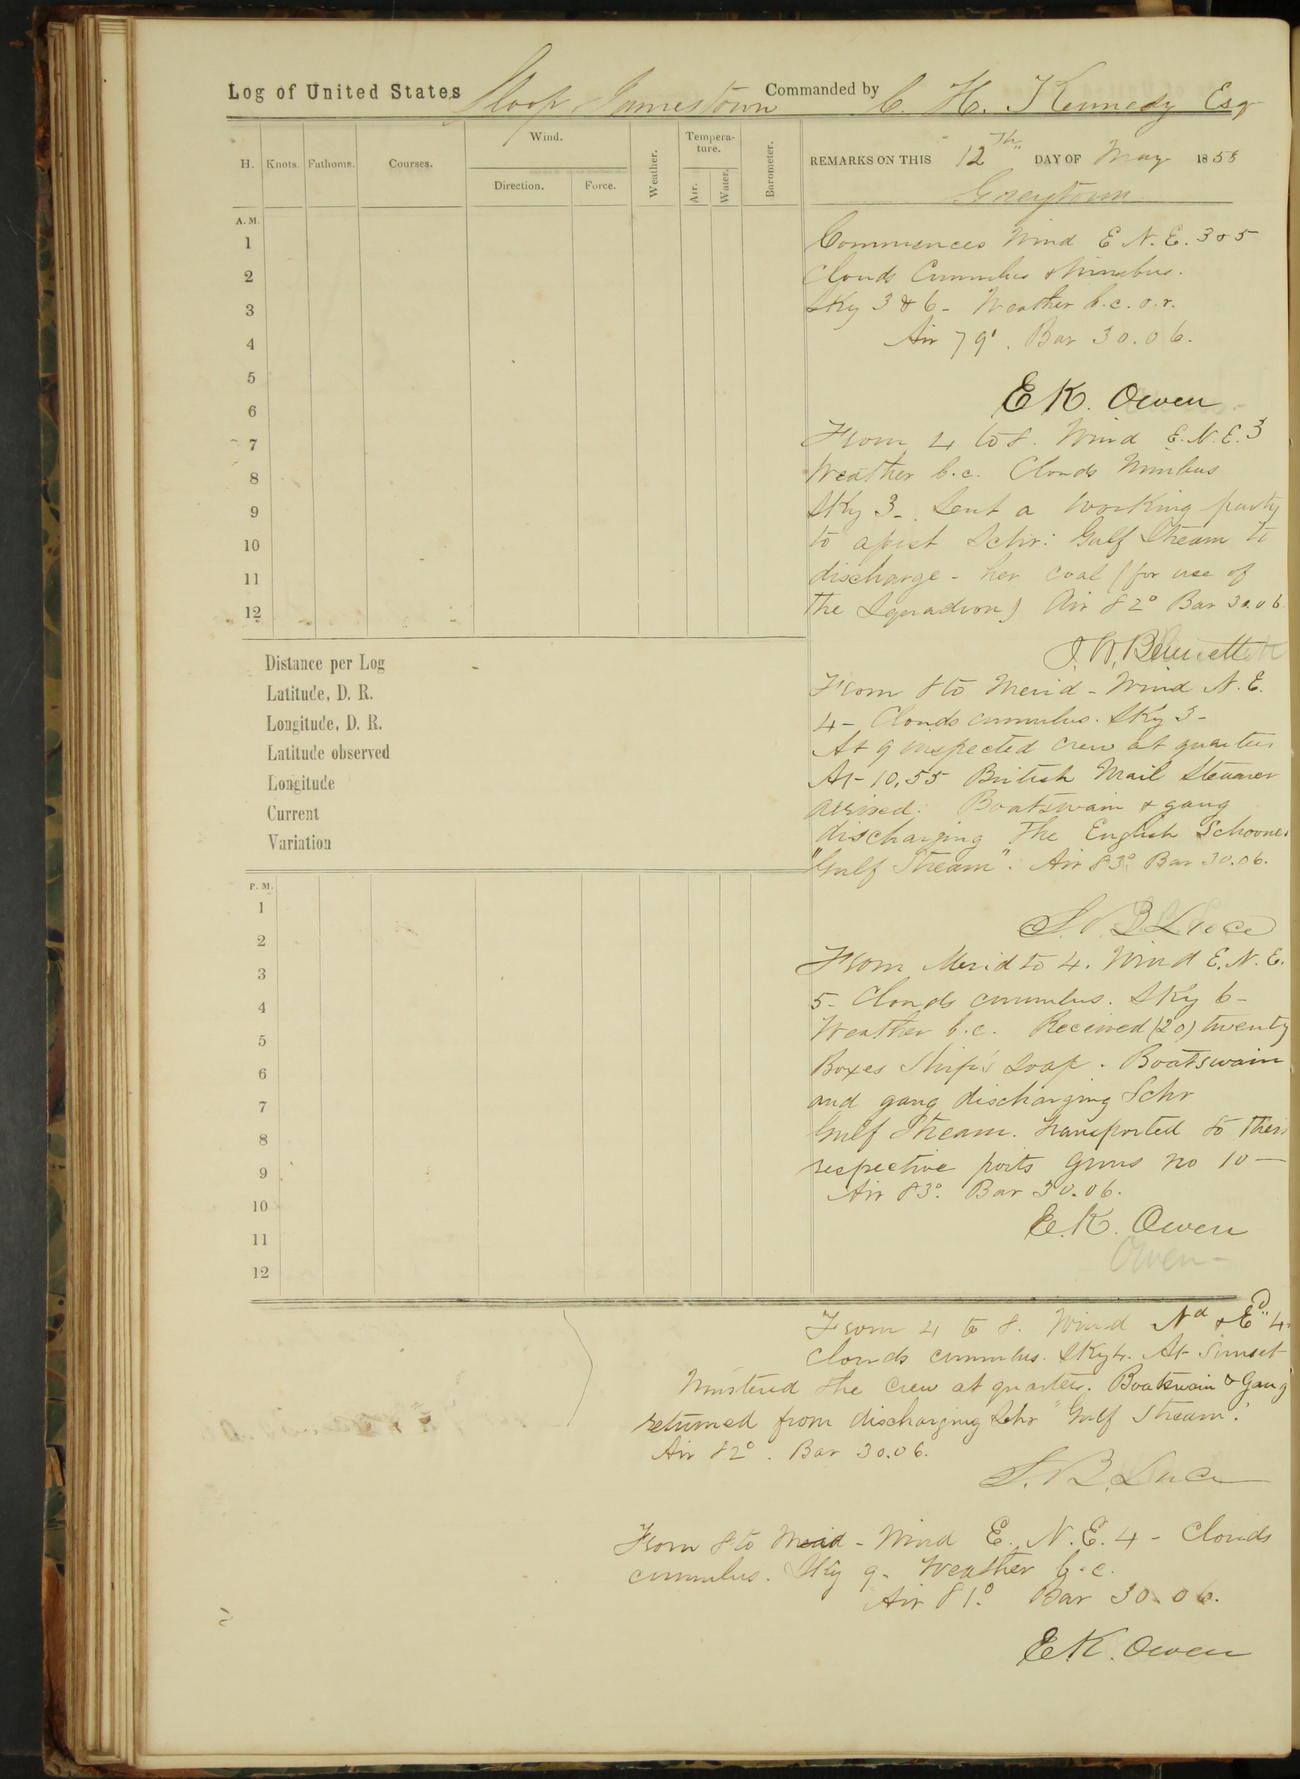 Log of United States Sloop Jamestown Commanded by C. H. Kennedy Esqr
H. Knots. Fathoms. Courses. Wind. Direction. Force. Weather. Tempera-ture. Air. Water. Barometer.
REMARKS ON THIS 12th DAY OF May 1858
Greytown
A. M.
1
2
3
4
5
6
7
8
9
10
11
12
Commences Wind E.N.E. 3 & 5
Clouds Cumulus & Nimbus.
Sky 3 & 6 - Weather b.c.o.r.
Air 79°. Bar 30.06.
E K. Owen
From 4 to 8. Wind E.N.E. 3
Weather b.c. Clouds Nimbus
Sky 3 - Sent a working party
to assist Schr: Gulf Stream to
discharge - her coal (for use of
the Squadron) Air 82° Bar 30.06
J. W. Bennett
From 8 to Merid - Wind N.E.
4 - Clouds cumulus. Sky 3 -
At 9 inspected crew at quarters
At 10,55 British Mail Steamer
arrived. Boatswain & gang
discharging the English Schooner
"Gulf Stream". Air 83° Bar 30.06.
S. B. Luce
Distance per Log
Latitude, D. R.
Longitude, D. R.
Latitude observed
Longitude
Current
Variation
P. M.
1
2
3
4
5
6
7
8
9
10
11
12
From Merid to 4. Wind E.N.E.
5 - Clouds cumulus. Sky 6 -
Weather b.c. Received (20) twenty
Boxes Ship's Soap. Boatswain
and gang discharging Schr
Gulf Stream. Transported to their
respective ports Guns no 10 -
Air 83°. Bar 30.06.
E. K. Owen
Owen -
From 4 to 8. Wind Nd & Ed 4.
Clouds cumulus. Sky 4. At Sunset
Mustered the Crew at quarters. Boatswain & Gang
returned from discharging Schr "Gulf Stream".
Air 82°. Bar 30.06.
S. B. Luce
From 8 to Merid - Wind E.N.E. 4 - Clouds
cumulus. Sky 9 - Weather b.c.
Air 81°. Bar 30.06.
E K. Owen